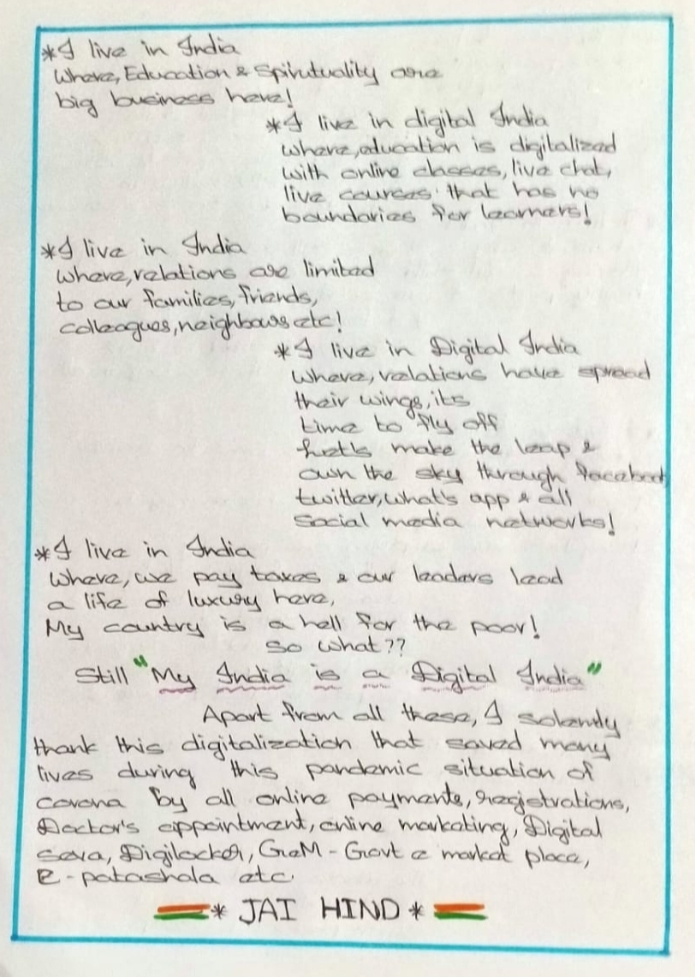 *I live in India
Where, Education & Spirutuality are
big business here!
*I live in digital India
where, education is digitalized
with online classes, live chat,
live courses that has no
boundaries for learners!
*I live in India
where, relations are limited
to our families, friends,
colleagues, neighbours etc!
*I live in Digital India
Where, relations have spread
their wings, its
time to fly off
Let's make the leap &
own the sky through facebook
twitter, what's app & all
Social media networks!
*I live in India
Where, we pay taxes & our leaders lead
a life of luxury here,
My country is a hell for the poor!
So what??
Still "My India is a Digital India"
Apart from all these, I solemnly
thank this digitalization that saved many
lives during this pandemic situation of
corona by all online payments, registrations,
Doctor's appointment, online marketing, Digital
Seva, Digilocker, GeM - Govt e market place,
E-patashala etc.
* JAI HIND *